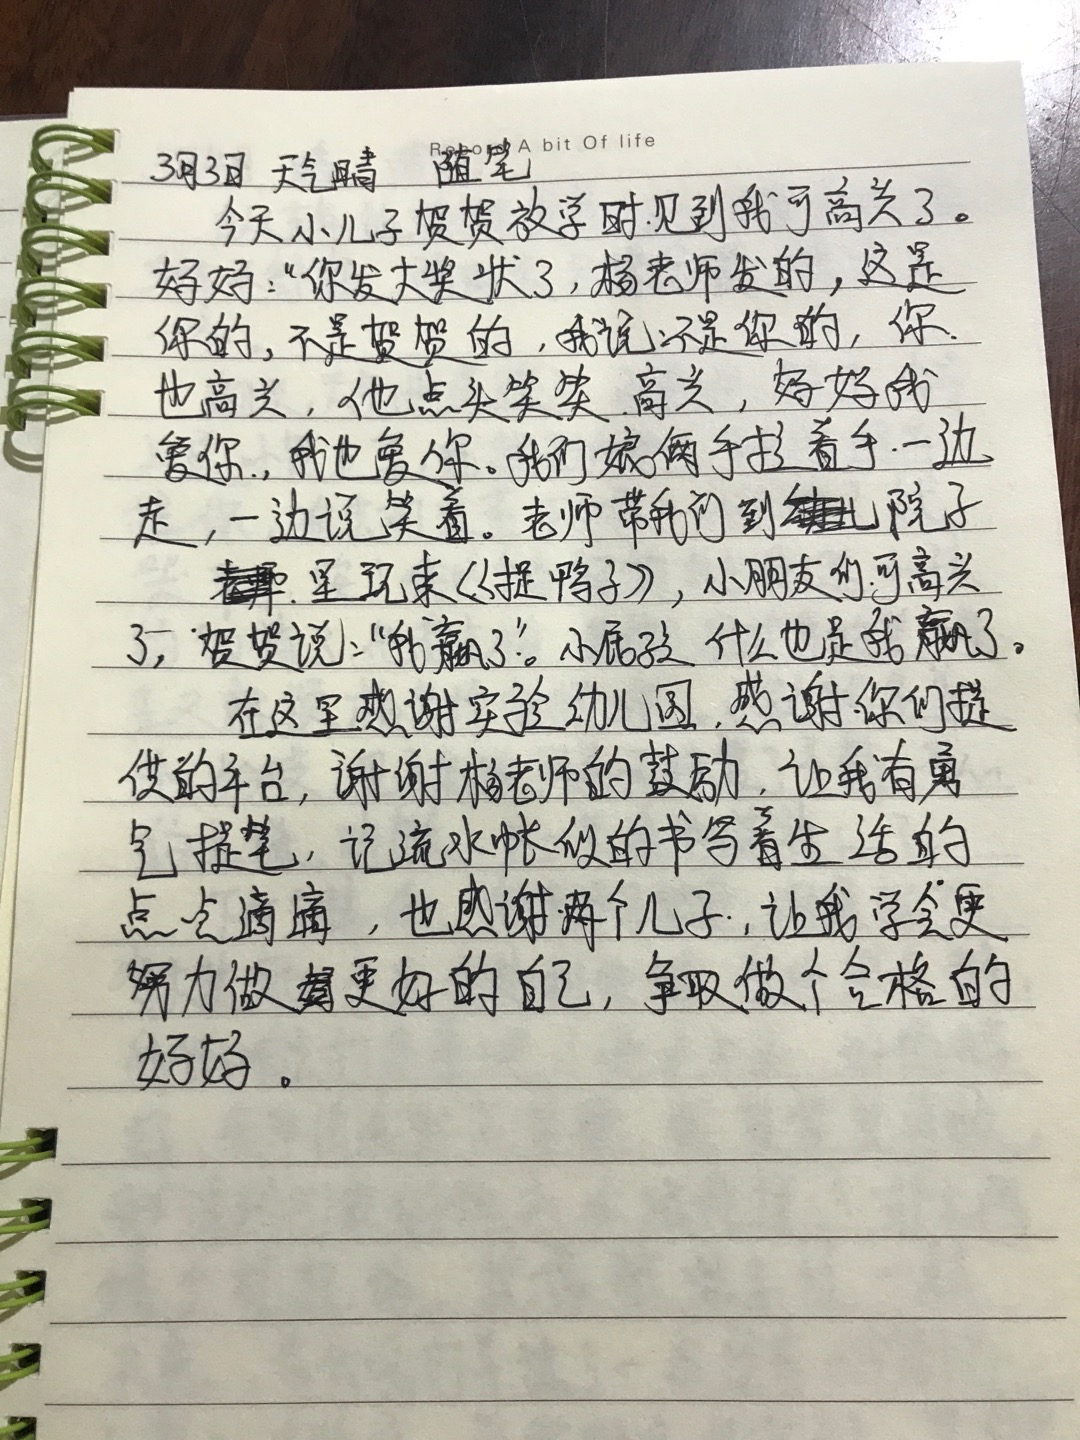 Record A bit Of life
3月3日 天气晴 随笔
今天小儿子贺贺放学时见到我可高兴了。
好好：“你发大奖状了，杨老师发的，这是
你的，不是贺贺的，我说不是你的，你
也高兴，他点头笑笑高兴，好好我
爱你，我也爱你。我们娘俩手拉着手一边
走，一边说笑着。老师带我们到院子
里玩耒《捉鸭子》，小朋友们可高兴
了，贺贺说：“我赢了”。小屁孩 什么也是我赢了。
在这里感谢实验幼儿园，感谢你们提
供的平台，谢谢杨老师的鼓励，让我有勇
气提笔，记流水帐似的书写着生活的
点点滴滴，也感谢两个儿子，让我学会更
努力做更好的自己，争取做个合格的
好好。